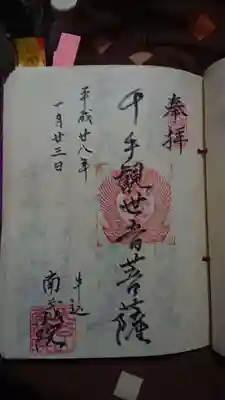 奉拝
千手観世音菩薩
平成廿八年
一月廿三日
牛込
南蔵院